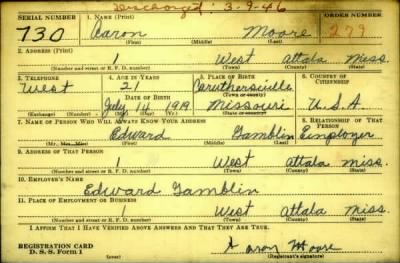 Discharged: 3-9-46
SERIAL NUMBER 1. NAME (Print) ORDER NUMBER
730 Aaron Moore 279
(First) (Middle) (Last)
2. ADDRESS (Print)
1 West Attala Miss.
(Number and street or R. F. D. number) (Town) (County) (State)
3. TELEPHONE 4. AGE IN YEARS 5. PLACE OF BIRTH 6. COUNTRY OF CITIZENSHIP
West 21 Caruthersville
DATE OF BIRTH (Town or county)
July 14 1919 Missouri U.S.A.
(Exchange) (Number) (Mo.) (Day) (Yr.) (State or country)
7. NAME OF PERSON WHO WILL ALWAYS KNOW YOUR ADDRESS 8. RELATIONSHIP OF THAT PERSON
Edward Gamblin Employer
(Mr., Mrs., Miss) (First) (Middle) (Last)
9. ADDRESS OF THAT PERSON
1 West Attala Miss.
(Number and street or R. F. D. number) (Town) (County) (State)
10. EMPLOYER'S NAME
Edward Gamblin
11. PLACE OF EMPLOYMENT OR BUSINESS
West Attala Miss.
(Number and street or R. F. D. number) (Town) (County) (State)
I AFFIRM THAT I HAVE VERIFIED ABOVE ANSWERS AND THAT THEY ARE TRUE.
REGISTRATION CARD
D. S. S. Form 1 (over) Aaron Moore
(Registrant's signature)